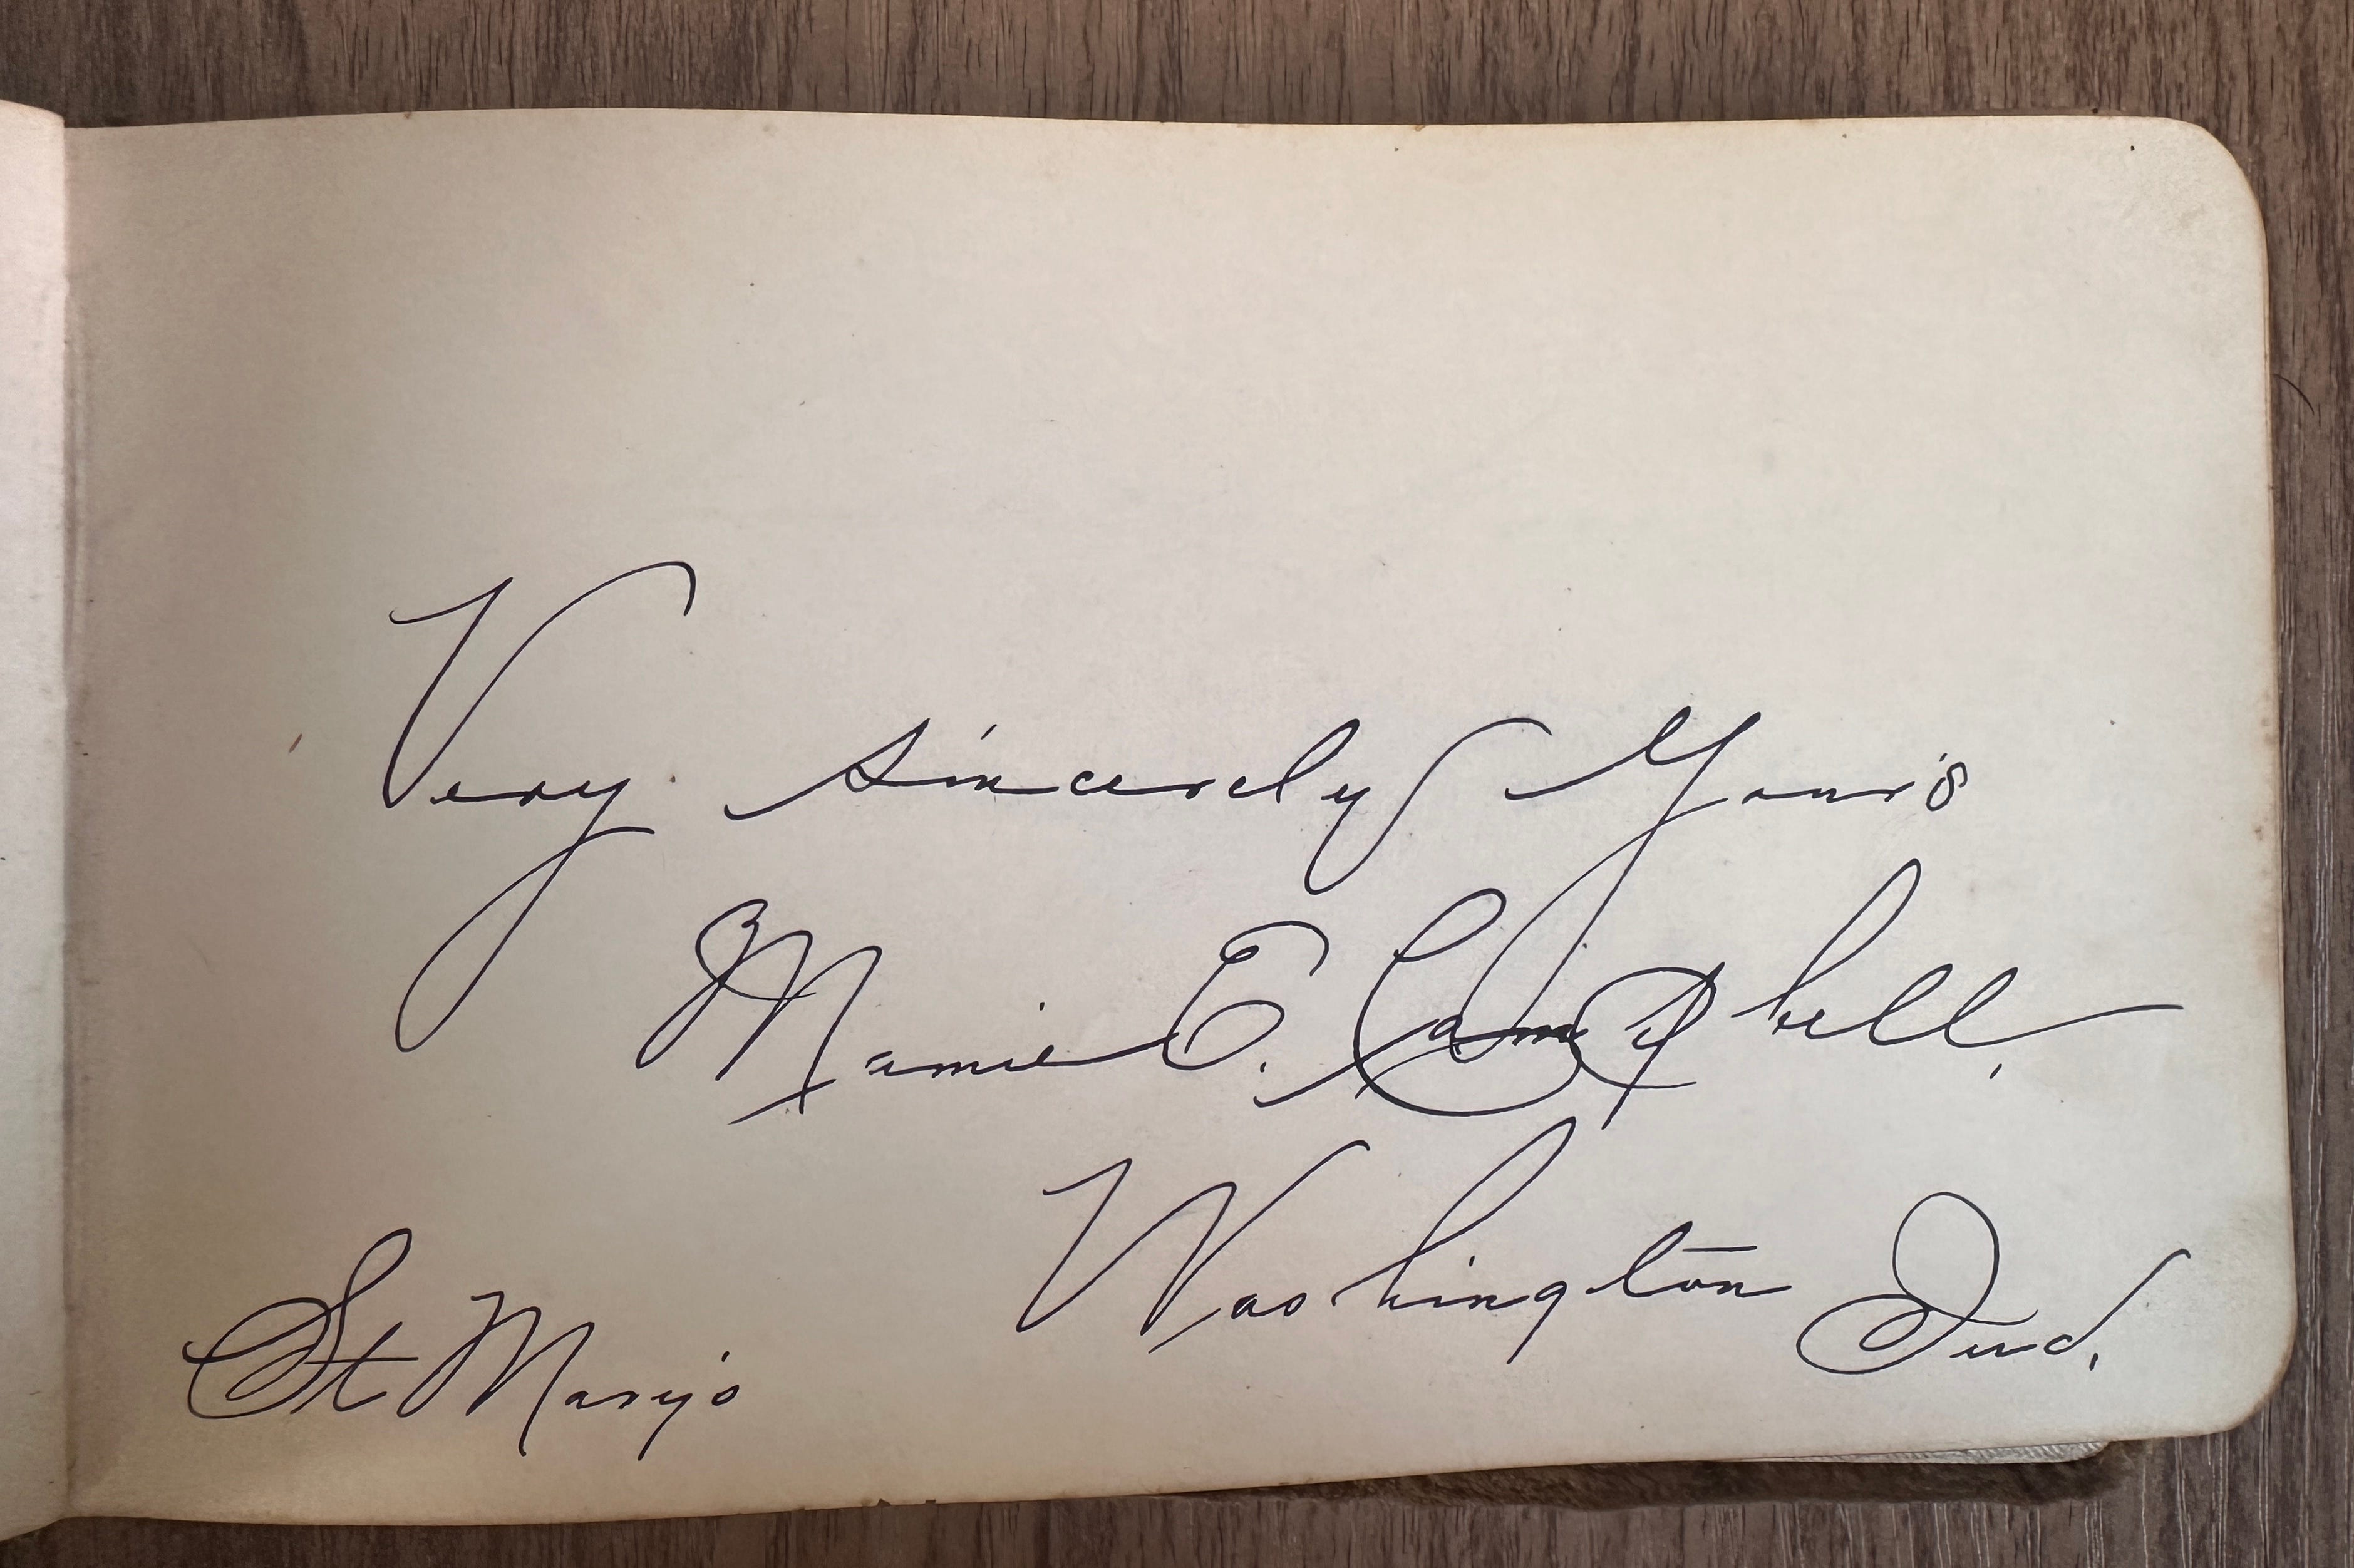 Very sincerely Your's
Mamie E. Campbell,
Washington Ind.
St Mary's